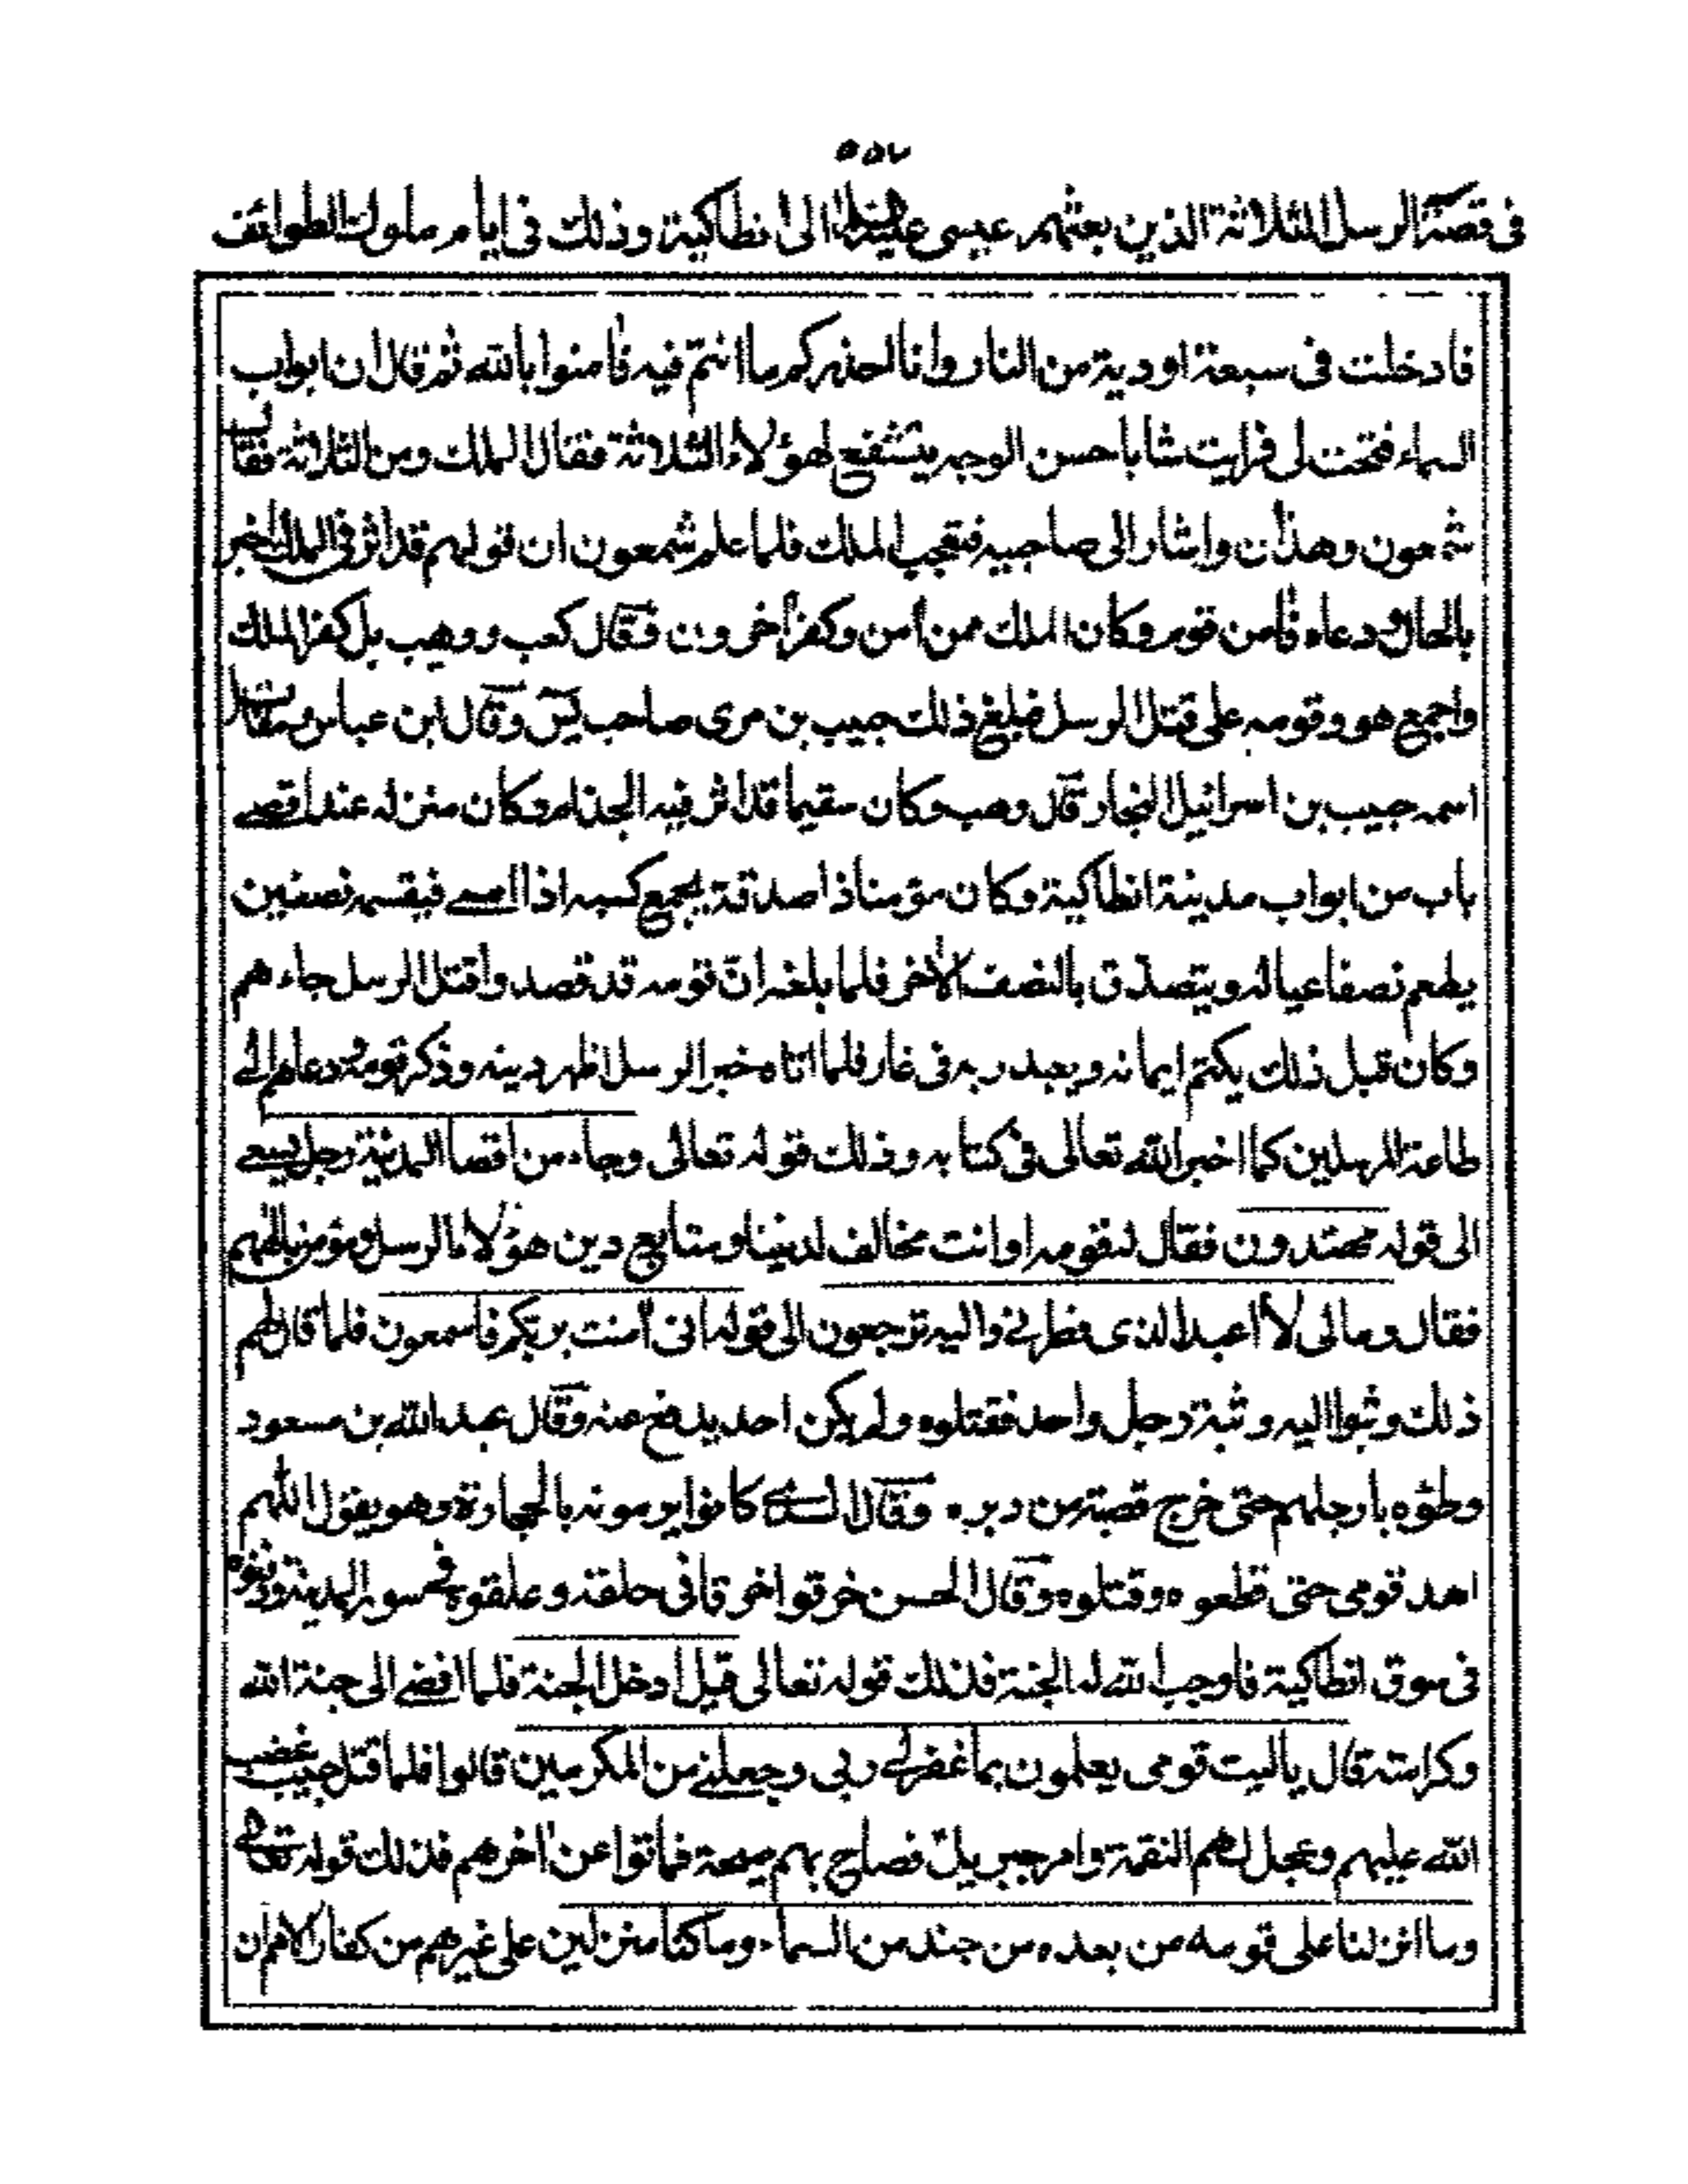 ٥٥٧
فى قصة الرسل الثلاثة الذين بعثهم عيسى عليه السلام الى انطاكية وذلك فى ايام ملوك الطوائف
فادخلت فى سبعة اودية من النار وانا احذركم ما انتم فيه فأمنوا بالله ثم قال ان ابواب
السماء فتحت لى فرايت شابا حسن الوجه يتشفع لهؤلاء الثلاثة فقال الملك ومن الثلاثة فقال
شمعون وهذان واشار الى صاحبيه فتعجب الملك فلما علم شمعون ان قولهم قد اثر فى الملك اخبر
بالحال ودعاه فأمن قوم وكان الملك ممن أمن وكفر أخرون وقال كعب ووهب بل كفر الملك
واجمع هو وقومه على قتل الرسل فبلغ ذلك حبيب بن مرى صاحب يس وقال ابن عباس ومقاتل
اسمه حبيب بن اسرائيل النجار قال وهب وكان سقيما قد اثر فيه الجذام وكان منزله عند اقصے
باب من ابواب مدينة انطاكية وكان مؤمنا ذا صدقة يجمع كسبه اذا امسے فيقسمه نصفين
يطعم نصفا عياله ويتصدق بالنصف الأخر فلما بلغه ان قومه قد قصدوا قتل الرسل جاءهم
وكان قبل ذلك يكتم ايمانه ويعبد ربه فى غار فلما اتاه خبر الرسل اظهر دينه وذكر قومه ودعاهم الے
طاعة المرسلين كما اخبر الله تعالى فى كتابه وذلك قوله تعالى وجاء من اقصا المدينة رجل يسعے
الى قوله مهتدون فقال لقومه او انت مخالف لديننا ومتابع دين هؤلاء الرسل ومؤمن بالههم
فقال ومالى لا اعبد الذى فطرنے واليه ترجعون الى قوله انى أمنت بربكم فاسمعون فلما قال لهم
ذلك وثبوا اليه وثبة رجل واحد فقتلوه ولم يكن احد يدفع عنه وقال عبد الله بن مسعود
وطؤه بارجلهم حتى خرج قصبه من دبره وقال السدے كانوا يرمونه بالحجارة وهو يقول اللهم
اهد قومى حتى قطعوه وقتلوه وقال الحسن خرقوا خرقا فى حلقه وعلقوه فے سور المدينة ودفنوه
فى سوق انطاكية فاوجب الله له الجنة فذلك قوله تعالى قيل ادخل الجنة فلما افضے الى جنة الله
وكرامته قال ياليت قومى يعلمون بما غفر لے ربى وجعلنے من المكرمين قالوا فلما قتل حبيب غضب
الله عليهم وعجل لهم النقمة وامر جبريل فصاح بهم صيحة فماتوا عن أخرهم فذلك قوله تعالے
وما انزلنا على قومه من بعده من جند من السماء وما كنا منزلين على غيرهم من كفار الامم ان